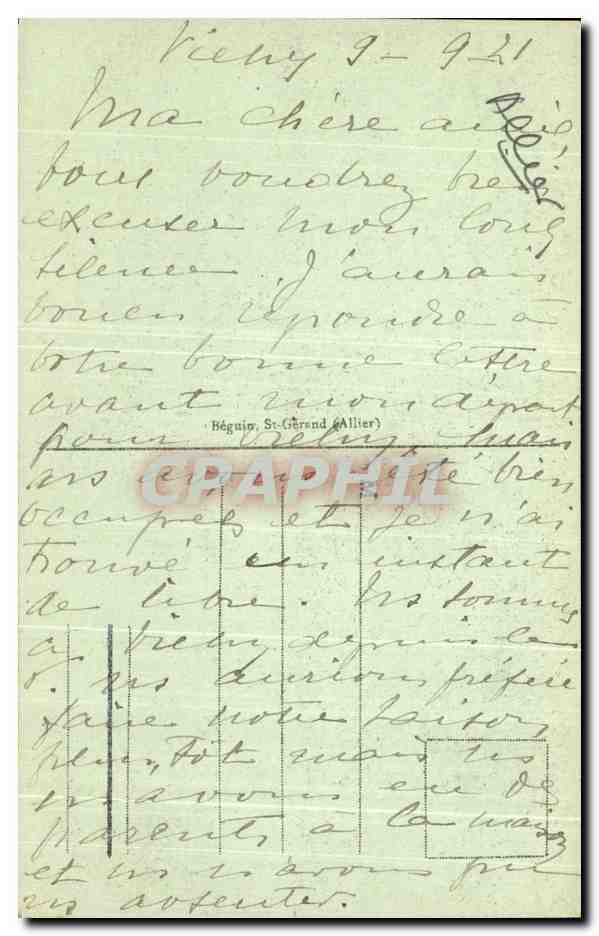 Vichy 9 - 9 - 21
Allier
Ma chère amie,
vous voudrez bien
excuser mon long
silence. J'aurais
voulu répondre à
votre bonne lettre
avant mon départ
Béguin, St-Gérand (Allier)
pour Vichy, mais
ns avons été bien
CPAPHIL
occupées et je n'ai
trouvé un instant
de libre. Ns sommes
à Vichy depuis le
8. ns aurions préféré
faire notre saison
plus tôt mais ns
avons eu des
parents à la maison
et ns n'avons pu
ns absenter.